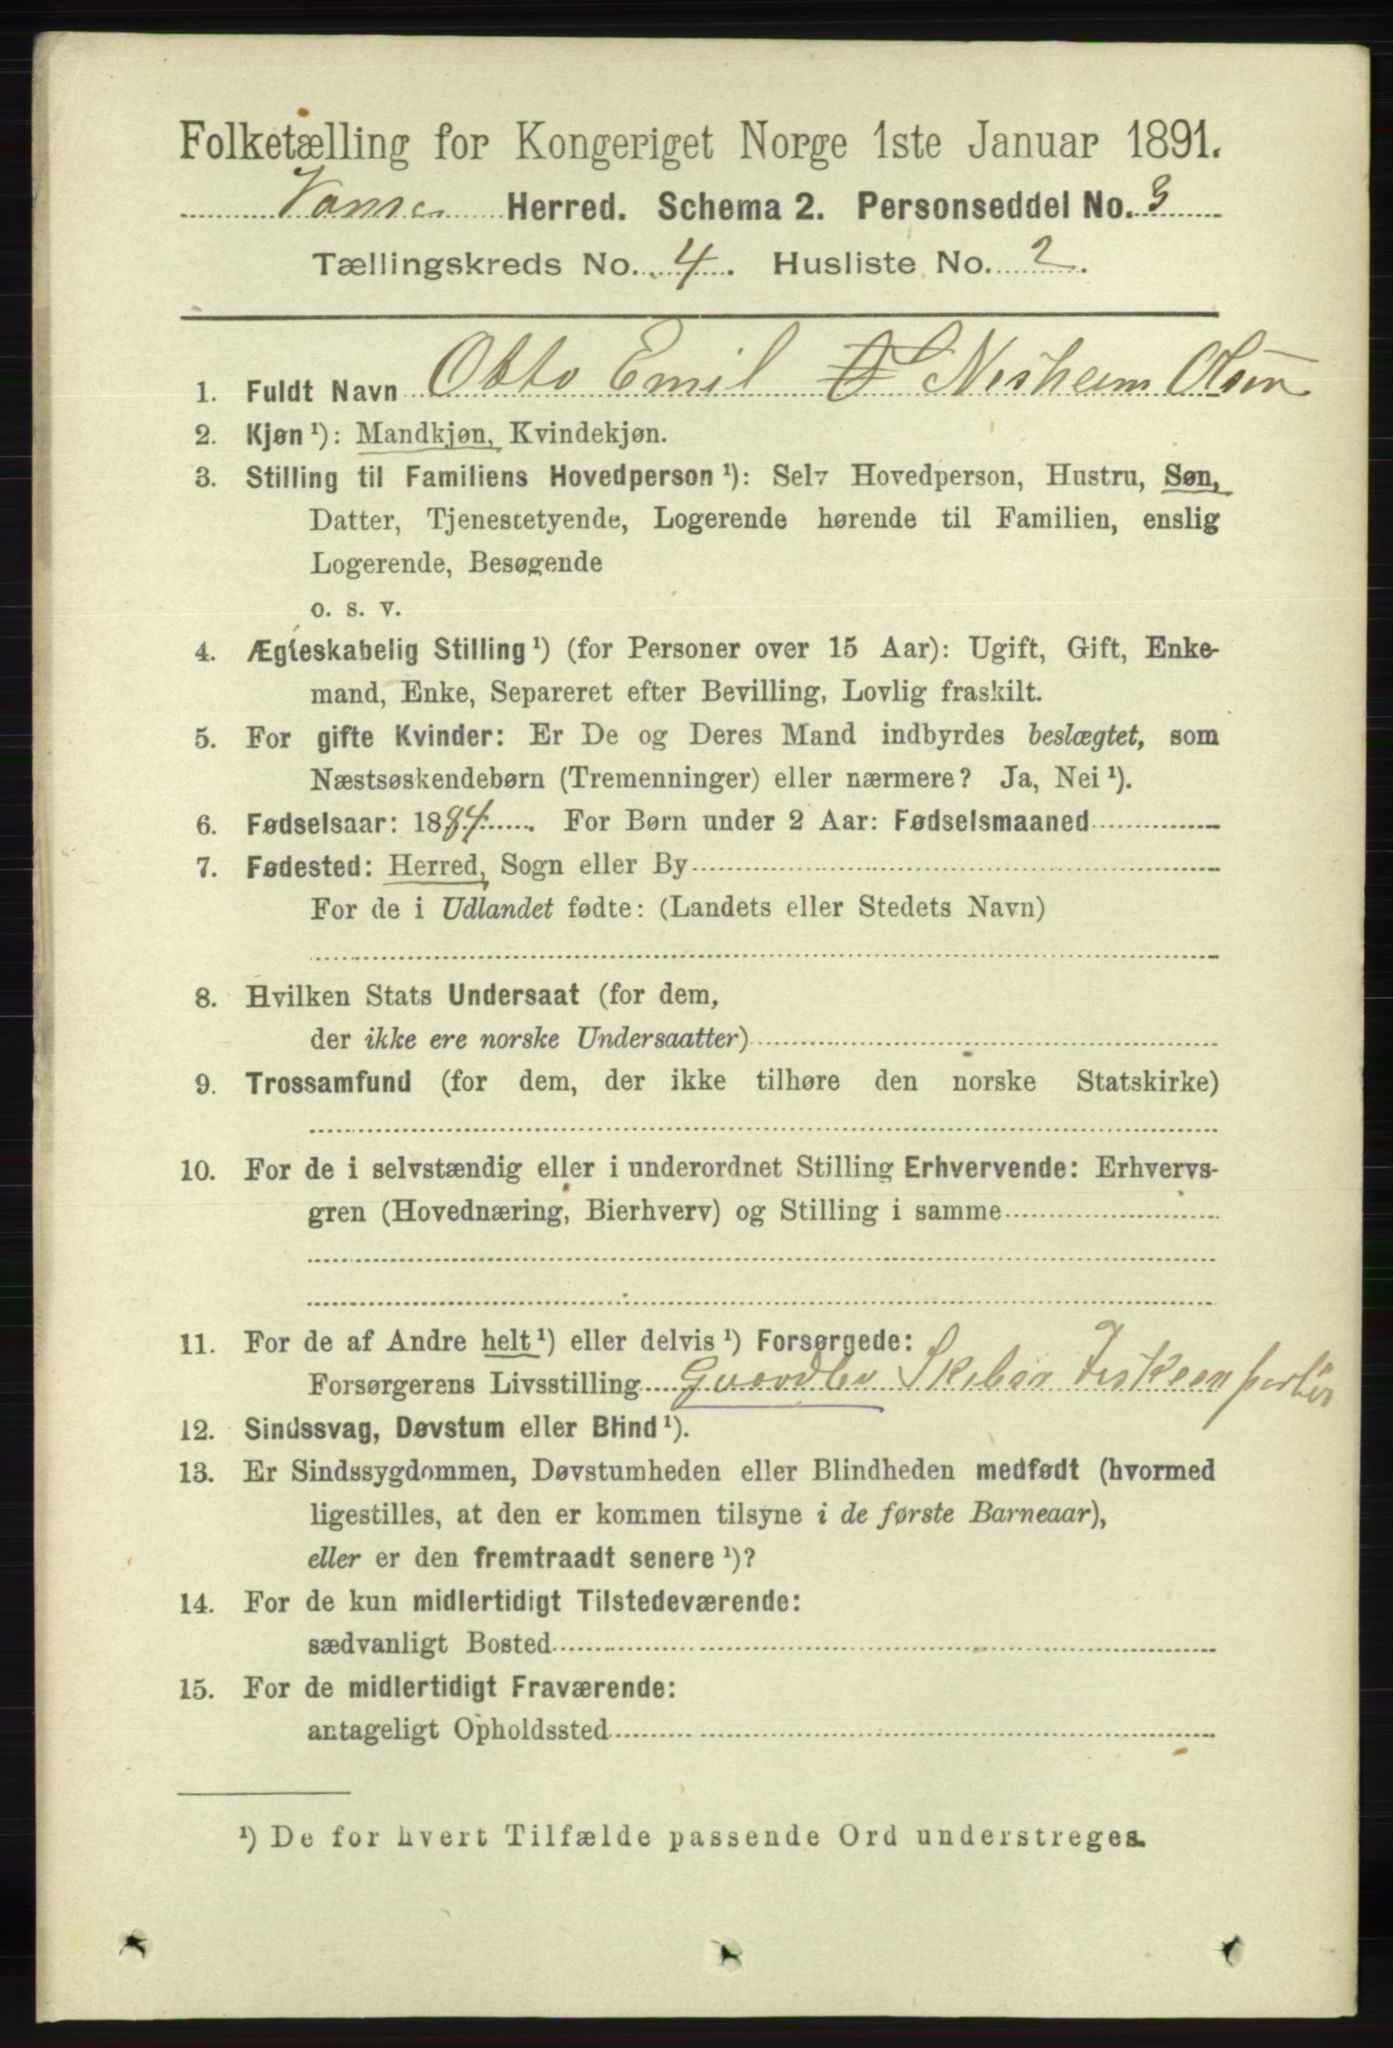 Folketælling for Kongeriget Norge 1ste Januar 1891.
Vanse Herred. Schema 2. Personseddel No. 3
Tællingskreds No. 4. Husliste No. 2.
1. Fuldt Navn Otto Emil Nesheim Olsen
2. Kjøn ¹): Mandkjøn, Kvindekjøn.
3. Stilling til Familiens Hovedperson ¹): Selv Hovedperson, Hustru, Søn,
Datter, Tjenestetyende, Logerende hørende til Familien, enslig
Logerende, Besøgende
o. s. v.
4. Ægteskabelig Stilling ¹) (for Personer over 15 Aar): Ugift, Gift, Enke-
mand, Enke, Separeret efter Bevilling, Lovlig fraskilt.
5. For gifte Kvinder: Er De og Deres Mand indbyrdes beslægtet, som
Næstsøskendebørn (Tremenninger) eller nærmere? Ja, Nei ¹).
6. Fødselsaar: 1884. For Børn under 2 Aar: Fødselsmaaned
7. Fødested: Herred, Sogn eller By
For de i Udlandet fødte: (Landets eller Stedets Navn)
8. Hvilken Stats Undersaat (for dem,
der ikke ere norske Undersaatter)
9. Trossamfund (for dem, der ikke tilhøre den norske Statskirke)
10. For de i selvstændig eller i underordnet Stilling Erhvervende: Erhvervs-
gren (Hovednæring, Bierhverv) og Stilling i samme
11. For de af Andre helt ¹) eller delvis ¹) Forsørgede:
Forsørgerens Livsstilling
12. Sindssvag, Døvstum eller Blind ¹).
13. Er Sindssygdommen, Døvstumheden eller Blindheden medfødt (hvormed
ligestilles, at den er kommen tilsyne i de første Barneaar),
eller er den fremtraadt senere ¹)?
14. For de kun midlertidigt Tilstedeværende:
sædvanligt Bosted
15. For de midlertidigt Fraværende:
antageligt Opholdssted
¹) De for hvert Tilfælde passende Ord understreges.